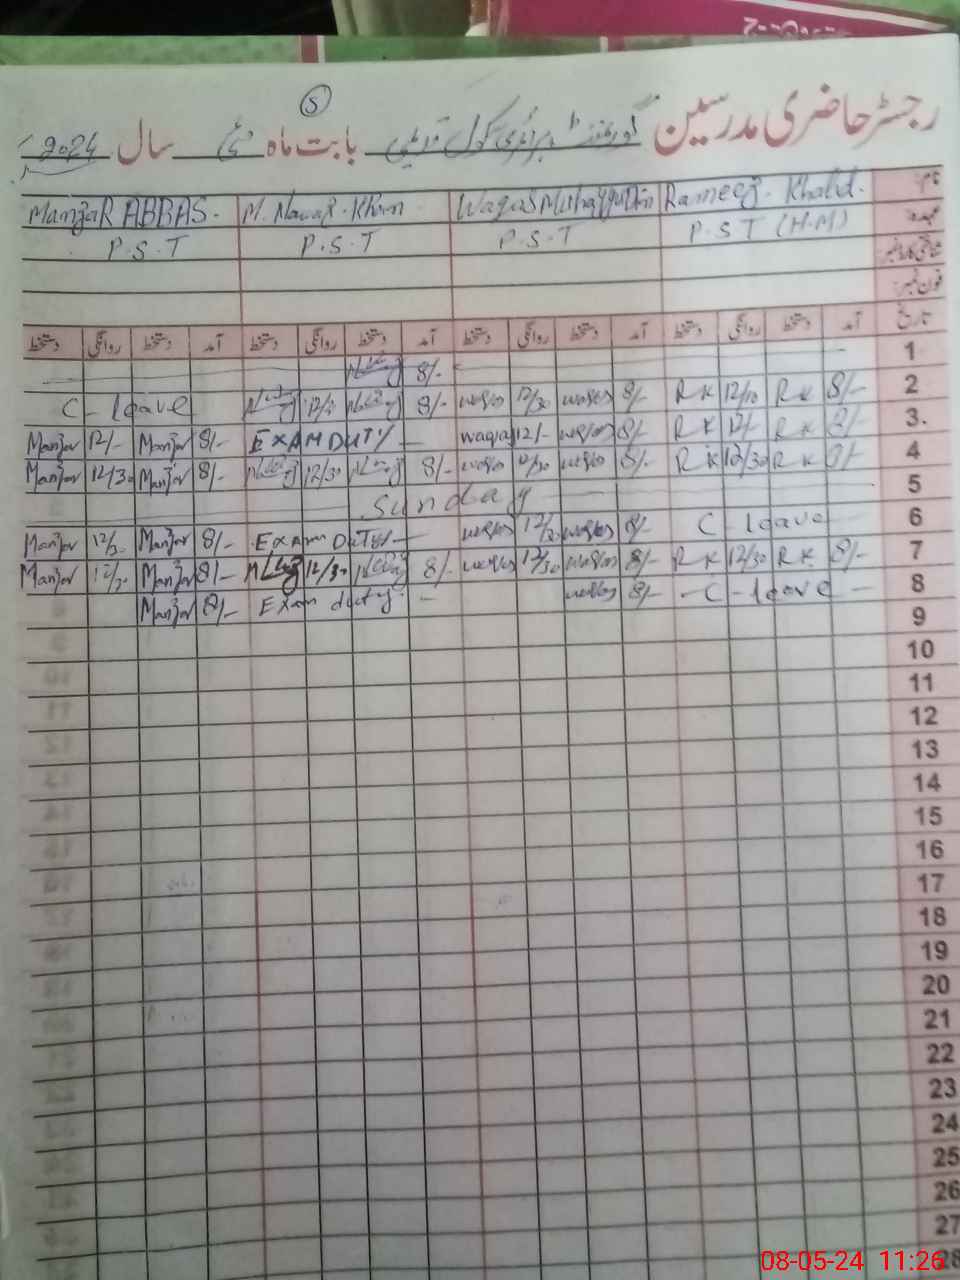 5
رجسٹر حاضری مدرسین گورنمنٹ پرائمری سکول بابت ماہ مئی سال 2024
نام Rameez. Khalid. Waqas M. Nawaz. Khan. ManzaR ABBAS.
عہدہ P.S.T (H.M) P.S.T P.S.T P.S.T
شناختی کارڈ نمبر
فون نمبر
تاریخ آمد دستخط روانگی دستخط آمد دستخط روانگی دستخط آمد دستخط روانگی دستخط آمد دستخط روانگی دستخط
1 8/-
2 8/- RK RK 8/- waqas 12/30 waqas 8/- C - leave
3. 8/- RK 12/- RK 8/- waqas 12/- waqas EXAM DUTY 8/- Manzar 12/- Manzar
4 8/- RK 12/30 RK 8/- waqas 12/30 waqas 8/- 12/30 8/- Manzar 12/30 Manzar
5 Sunday
6 C - leave 8/- waqas waqas Exam DUTY 8/- Manzar Manzar
7 8/- RK 12/30 RK 8/- waqas 12/30 waqas 8/- 12/30 8/- Manzar 12/30 Manzar
8 - C - leave 8/- waqas Exam duty 8/- Manzar
9
10
11
12
13
14
15
16
17
18
19
20
21
22
23
24
25
26
27
28
08-05-24 11:26